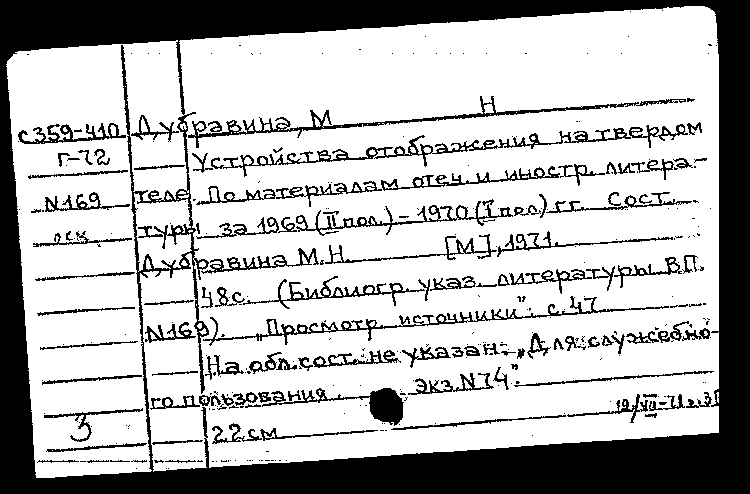 с359-410 Дубравина, М Н
Г-72 Устройства отображения на твердом
N169 теле. По материалам отеч. и иностр. литера-
оск. туры за 1969 (II пол.) – 1970 (I пол.) г.г. Сост.
Дубравина М.Н. [М], 1971.
48с. (Библиогр. указ. литературы В.П.
N169). „Просмотр. источники": с. 47
На обл. сост. не указан. „Для служебно-
го пользования. Экз. N74".
3 22 см 19/VII-71г.